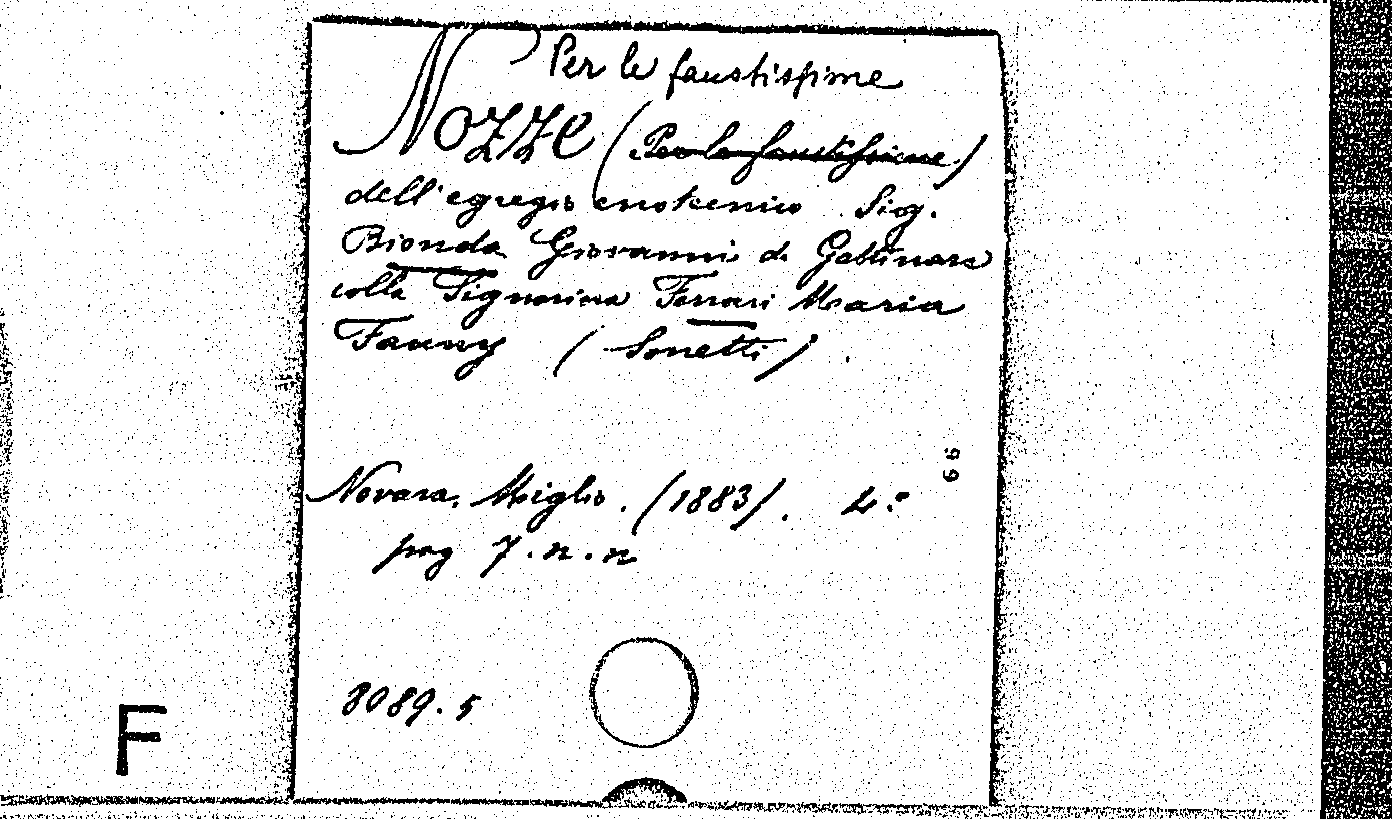 Per le faustissime
Nozze (Per le faustissime)
dell'egregio enotecnico Sig.
Bionda Giovanni di Gattinara
colla Signorina Ferrari Maria
Fanny (Sonetti).
66
Novara, Miglio. (1883). 4.°
pag 7.n.n
8089.5
F